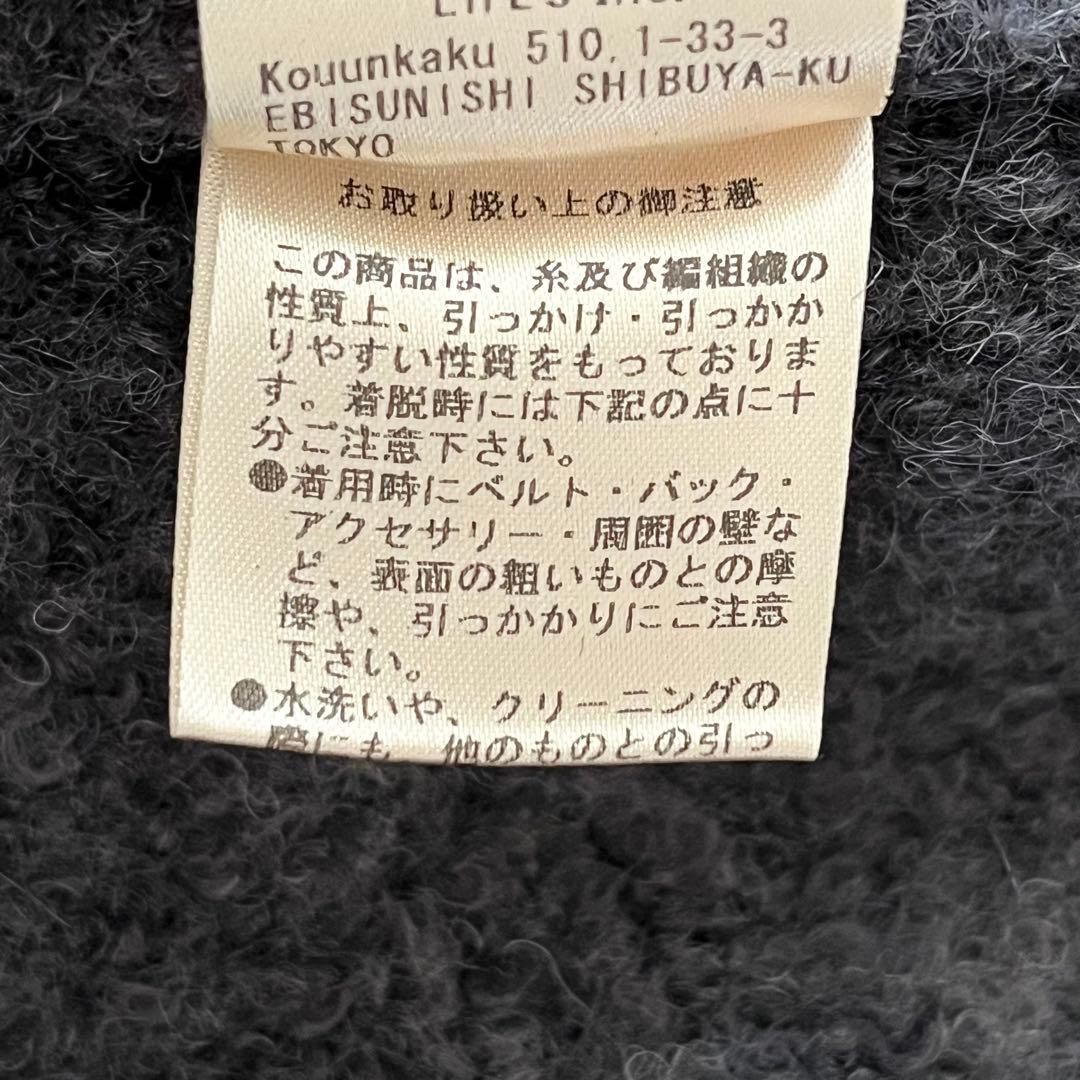 Kouunkaku 510, 1-33-3
EBISUNISHI SHIBUYA-KU
TOKYO
お取り扱い上の御注意
この商品は、糸及び編組織の
性質上、引っかけ・引っかか
りやすい性質をもっておりま
す。着脱時には下記の点に十
分ご注意下さい。
●着用時にベルト・バック・
アクセサリー・周囲の壁な
ど、表面の粗いものとの摩
擦や、引っかかりにご注意
下さい。
●水洗いや、クリーニングの
際にも、他のものとの引っ